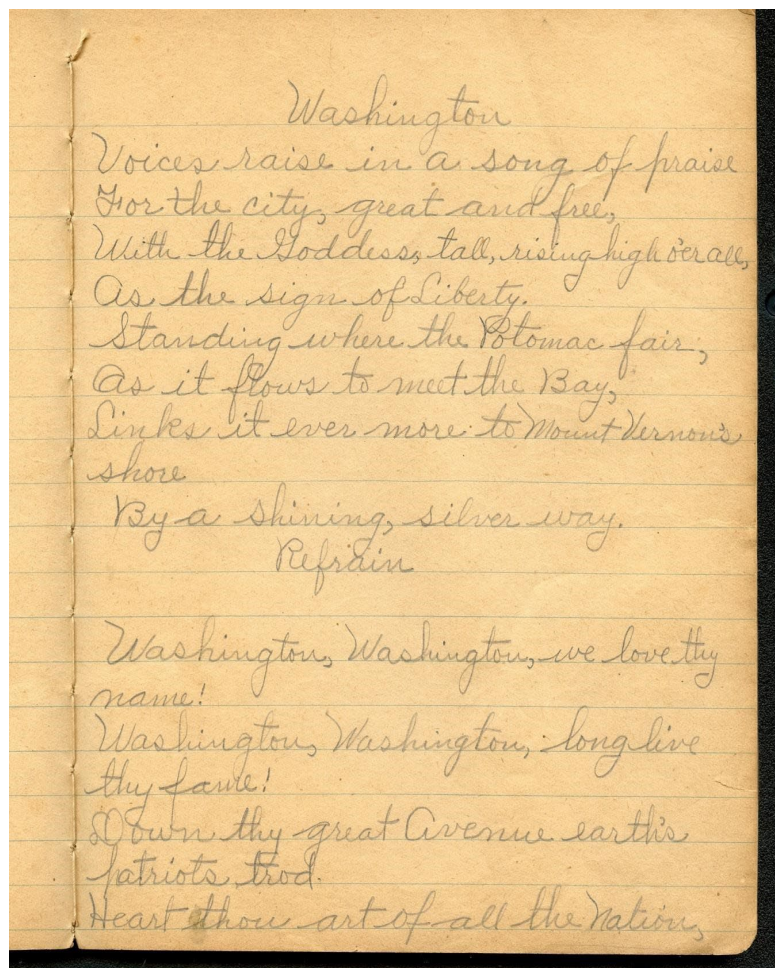 Washington
Voices raise in a song of praise
For the city, great and free,
With the Goddess, tall, rising high o'er all,
As the sign of Liberty.
Standing where the Potomac fair,
As it flows to meet the Bay,
Links it ever more to Mount Vernon's
shore
By a shining, silver way.
Refrain
Washington, Washington, we love thy
name!
Washington, Washington, long live
thy fame!
Down thy great Avenue earth's
patriots trod.
Heart thou art of all the Nation,